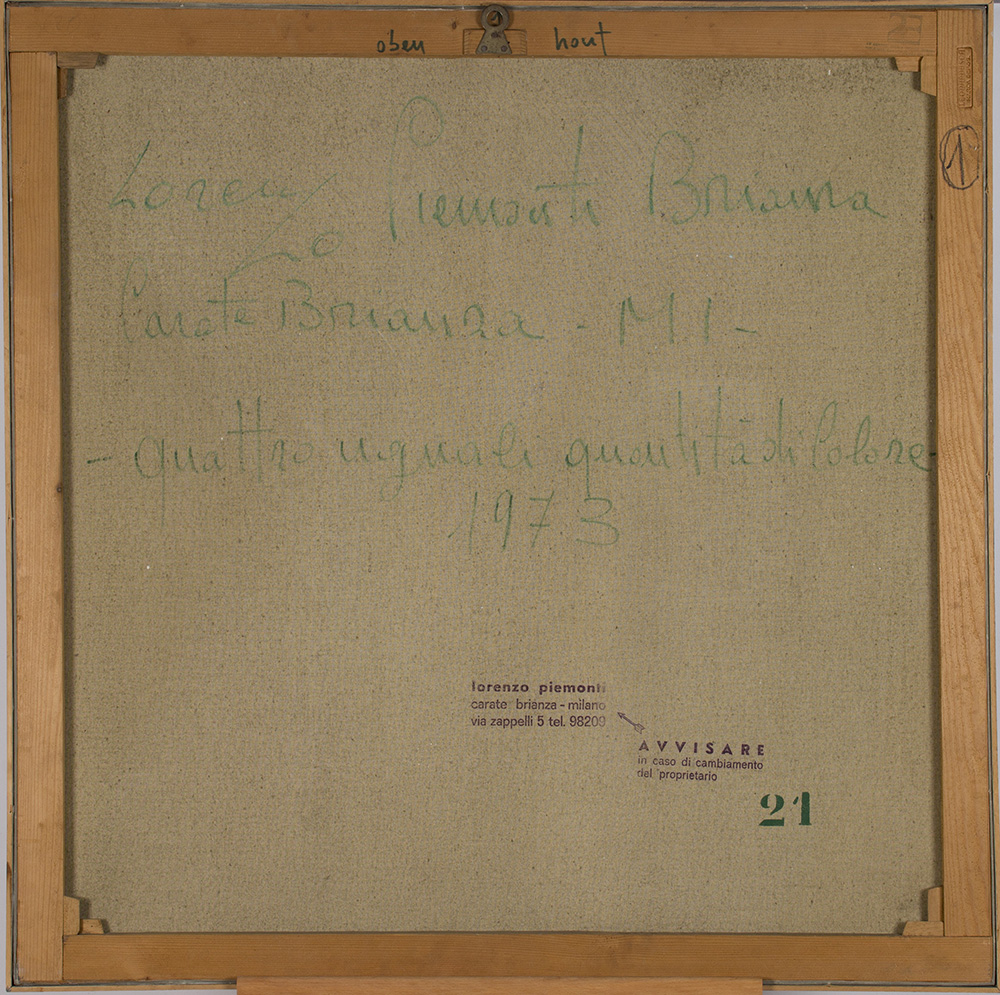 oben hout
23
1
Loren Piemonti Brianza
zo
Carate Brianza - MI -
- quattro uguali quantità di Colore -
1973
lorenzo piemonti
carate brianza - milano
via zappelli 5 tel. 98209
AVVISARE
in caso di cambiamento
del proprietario
21